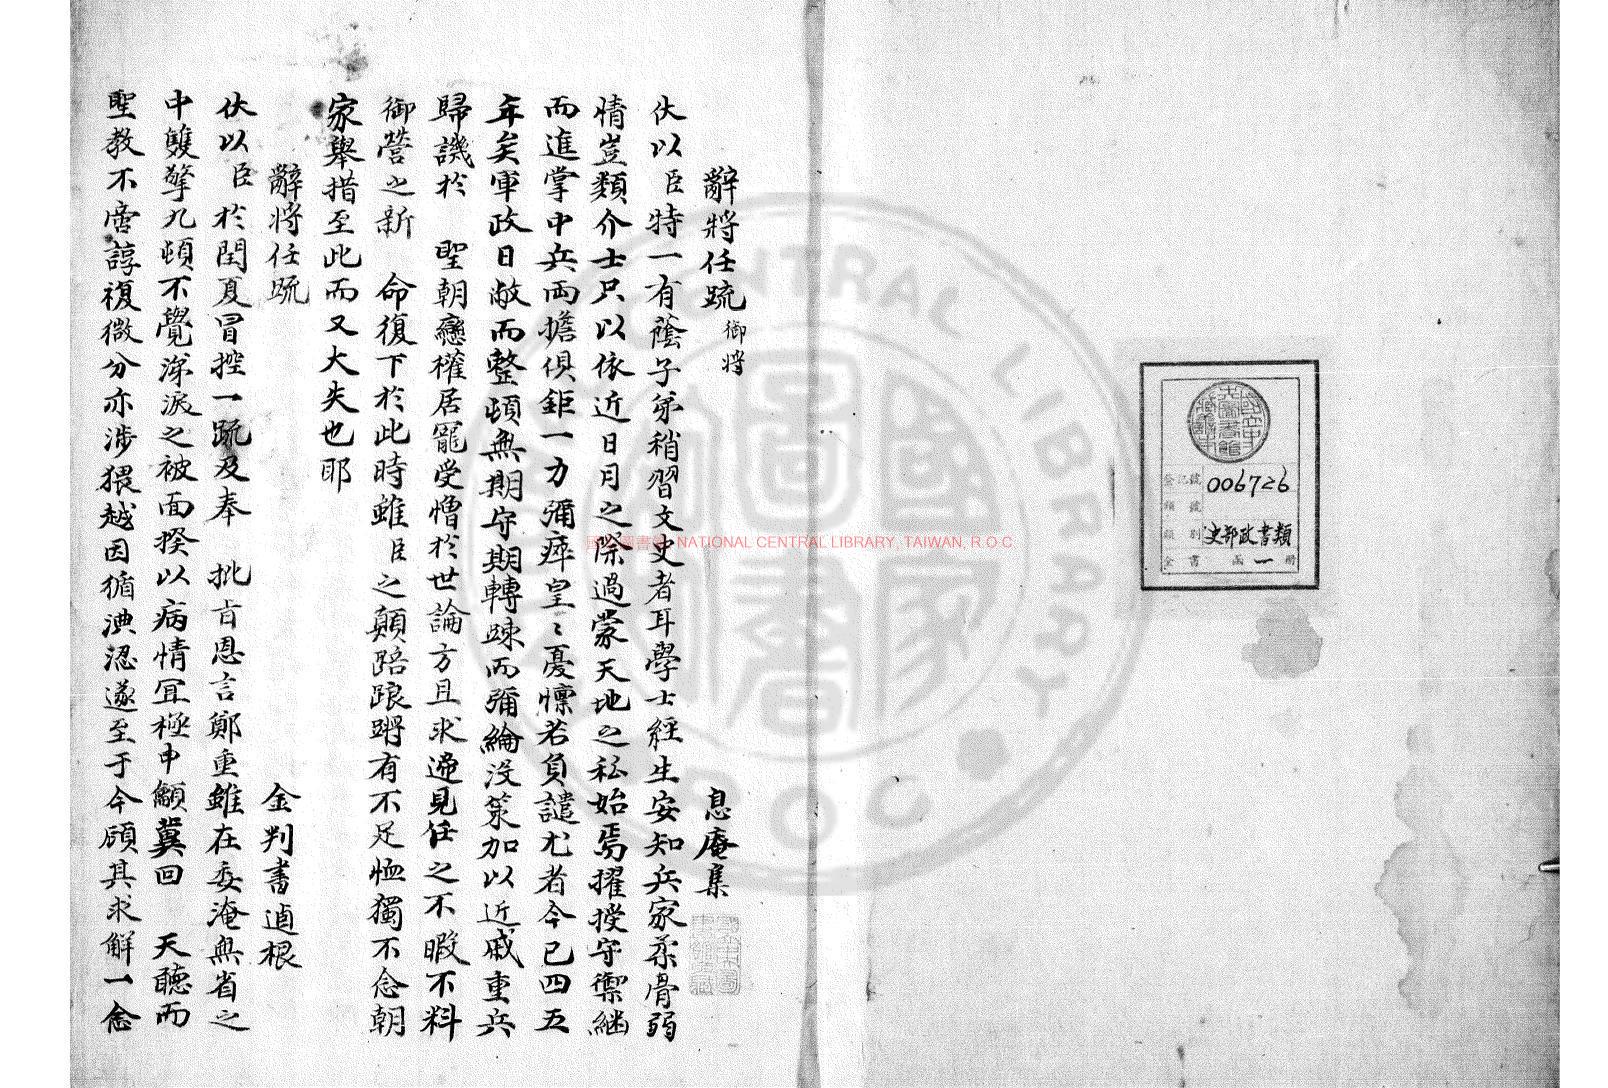 國立中央圖書館藏書
登記號 006726
類號
類別 史部政書類
全書 函一冊
辭將任疏 御將 息庵集
伏以臣特一有蔭子弟稍習文史者耳學士經生安知兵家柔骨弱
情豈類介士只以依近日月之際過蒙天地之私始焉擢授守禦繼
而進掌中兵兩擔俱鉅一力彌瘁皇〻憂懍若負譴尤者今已四五
年矣軍政日敝而整頓無期守期轉踈而彌綸沒策加以近戚重兵
歸譏於 聖朝戀權居寵受憎於世論方且求遞見任之不暇不料
御營之新 命復下於此時雖臣之顛踣踉蹡有不足恤獨不念朝
家舉措至此而又大失也耶
辭將任疏 金判書逌根
伏以臣於閏夏冒控一疏及奉 批旨恩言鄭重雖在委淹無省之
中雙擎九頓不覺涕淚之被面揆以病情冝極申籲冀回 天聽而
聖教不啻諄複微分亦涉猥越因循淟涊遂至于今顧其求解一念
國家圖書館 NATIONAL CENTRAL LIBRARY, TAIWAN, R.O.C
NATIONAL CENTRAL LIBRARY
ROC
國家圖書館